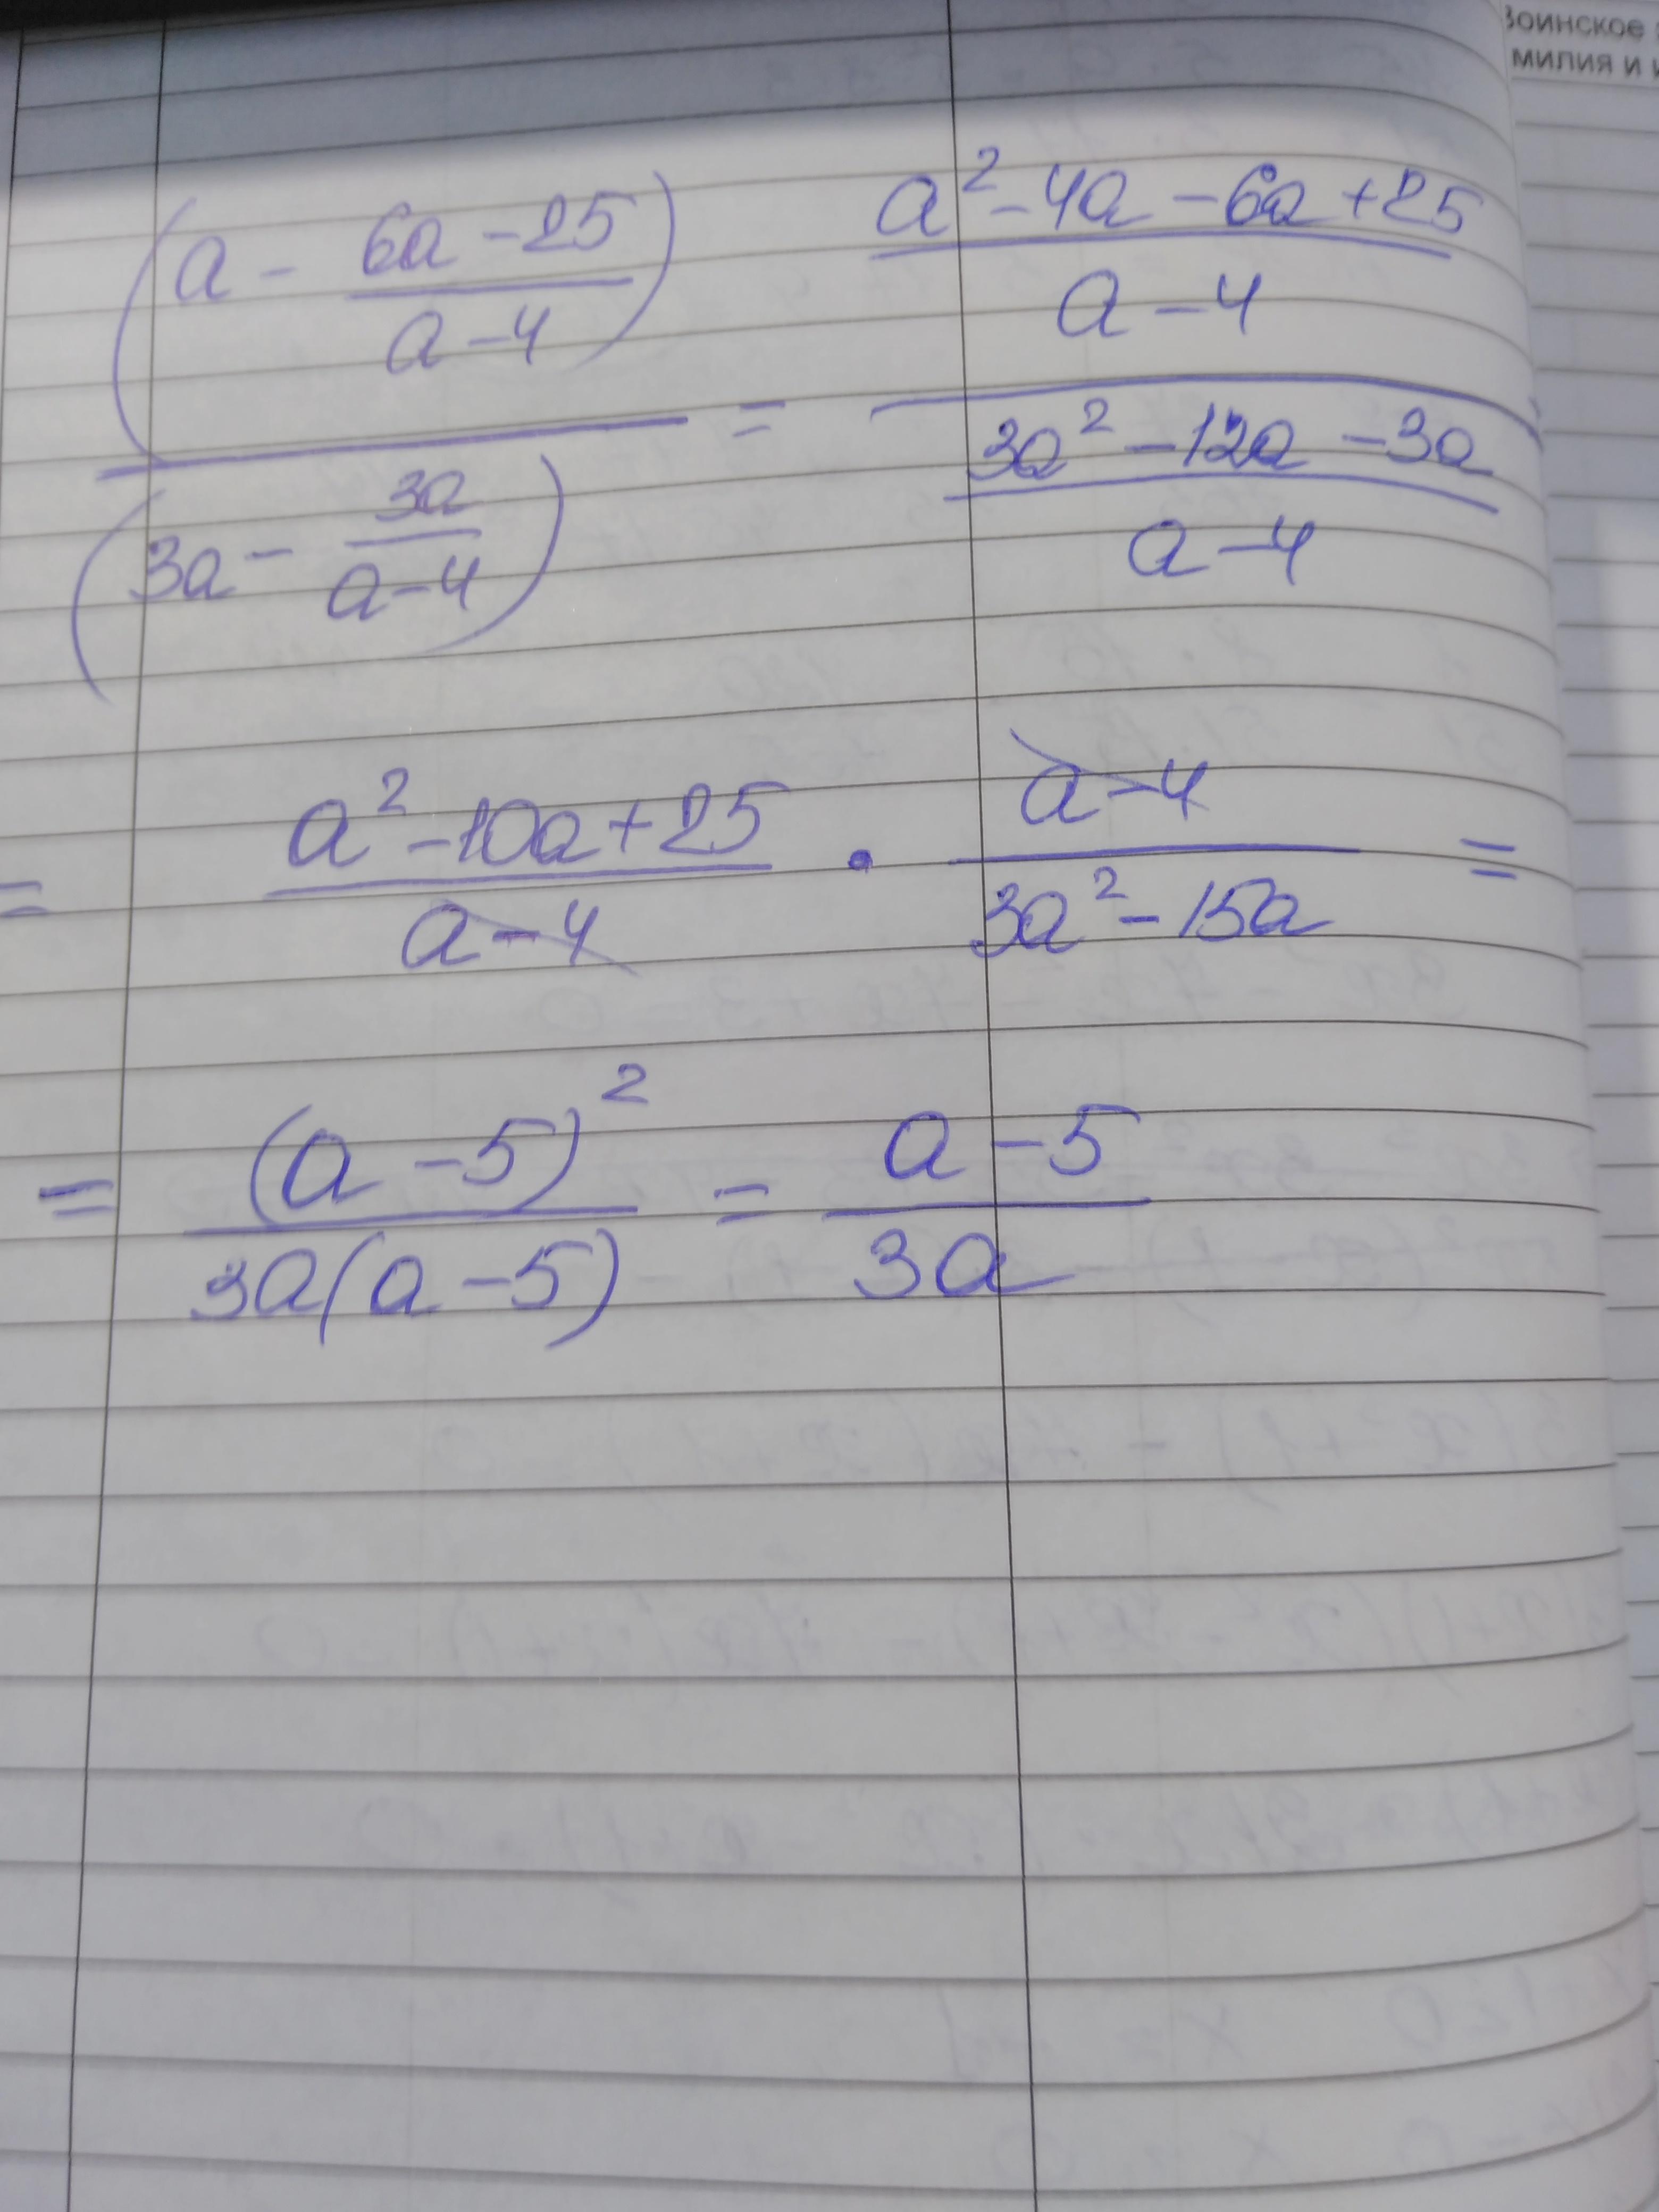 Воинское
милия и
(a - (6a - 25)/(a - 4)) / (3a - 3a/(a - 4)) = ((a² - 4a - 6a + 25)/(a - 4)) / ((3a² - 12a - 3a)/(a - 4))
= (a² - 10a + 25)/(a - 4) · (a - 4)/(3a² - 15a) =
= (a - 5)²/(3a(a - 5)) = (a - 5)/(3a)